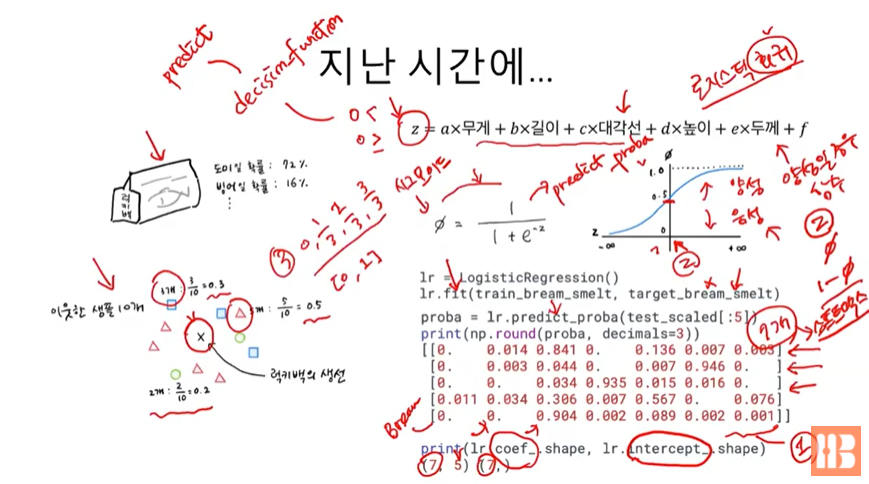 predict
decision_function
지난 시간에...
로지스틱 회귀
0 <
0 ≥
z = a×무게 + b×길이 + c×대각선 + d×높이 + e×두께 + f
도미일 확률 : 72%
빙어일 확률 : 16%
⋮
럭키백
시그모이드
predict_proba
∅ = 1 / (1 + e^-z)
∅
1.0
0.5
0
z
-∞
+∞
양성
음성
양성일 확률
②
∅
1-∅
소프트맥스
③ 0, 1/3, 2/3, 3/3
[0, 1]
②
이웃한 샘플 10개
3개 : 3/10 = 0.3
5개 : 5/10 = 0.5
2개 : 2/10 = 0.2
x
럭키백의 생선
lr = LogisticRegression()
lr.fit(train_bream_smelt, target_bream_smelt)
proba = lr.predict_proba(test_scaled[:5])
print(np.round(proba, decimals=3))
[[0. 0.014 0.841 0. 0.136 0.007 0.003]
[0. 0.003 0.044 0. 0.007 0.946 0. ]
[0. 0. 0.034 0.935 0.015 0.016 0. ]
[0.011 0.034 0.306 0.007 0.567 0. 0.076]
[0. 0. 0.904 0.002 0.089 0.002 0.001]]
Bream
print(lr.coef_.shape, lr.intercept_.shape)
(7, 5) (7,)
①
HB